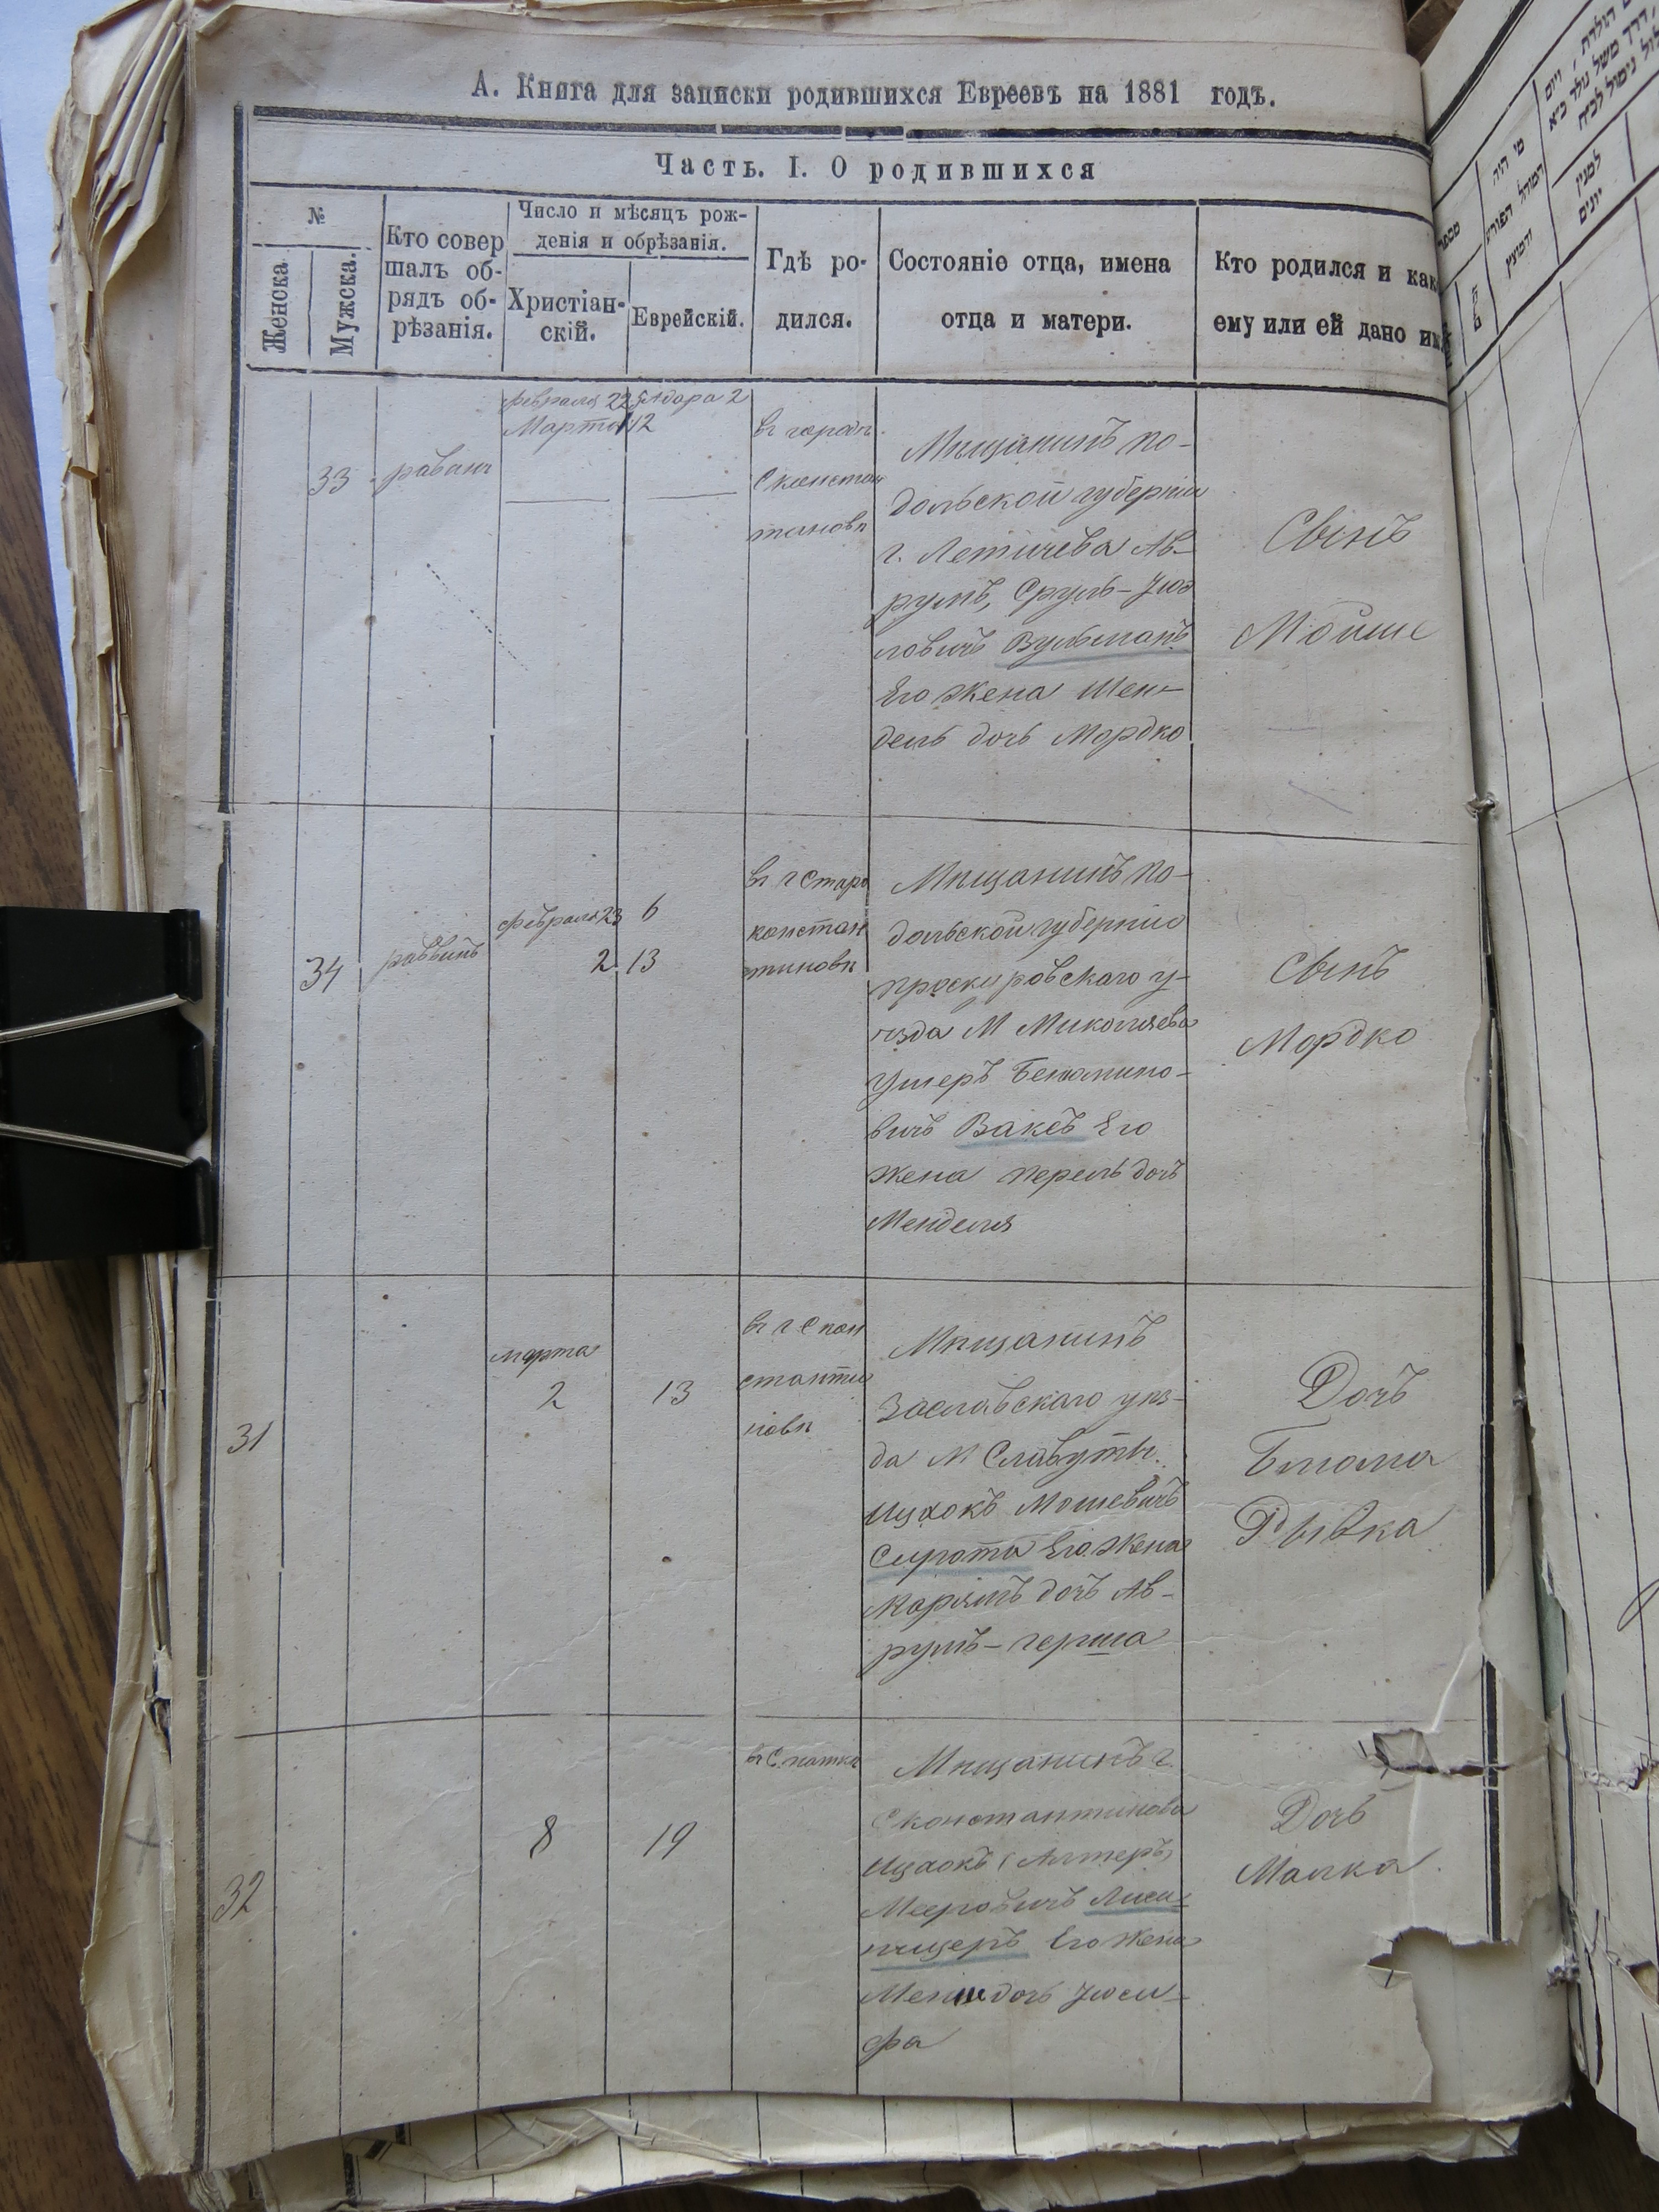 А. Книга для записки родившихся Евреевъ на 1881 годъ.
Часть. I. О родившихся
№
Женска
Мужска.
Кто совер
шалъ об-
рядъ об-
рѣзанія.
Число и мѣсяцъ рож-
денія и обрѣзанія.
Христіан-
скій.
Еврейскій.
Гдѣ ро-
дился.
Состояніе отца, имена
отца и матери.
Кто родился и как
ему или ей дано им
33
Февраля 22
Марта 1
Адара 2
12
въ городѣ
Сконстан
тиновѣ
Мѣщанинъ по-
дольской губерніи
г. Летичева Ав-
румъ, Сруль-Іос
Вульманъ
Его жена Шен-
дель дочь Мордко
Сынъ
Мойше
34
раввинъ
Февраля 23
2
6
13
въ г Старо
констан
тиновѣ
Мѣщанинъ по-
дольской губерніи
проскуровскаго у-
ѣзда М Николаева
Ушеръ Беньямино-
вичъ Ваксъ Его
жена Перель дочь
Менделя
Сынъ
Мордко
31
марта
2
13
въ г Скон
станти
новѣ
Мѣщанинъ
Заславскаго уѣз-
да М Славуты
Ицхокъ Мошевичъ
Сирота Его жена
Марямъ дочь Ав-
румъ-герша
Дочь
Рывка
32
8
19
Мѣщанинъ г
Сконстантинова
Ицхокъ (Алтеръ)
Мееровичъ
Его жена
дочь Іоси-
фа
Дочь
Малка